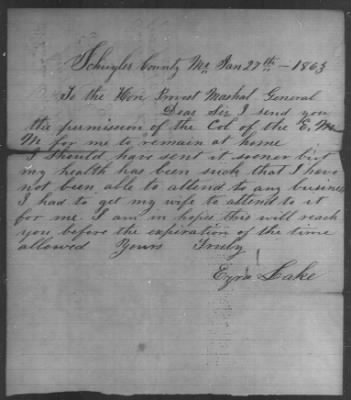 Schuyler County Mo Jan 27th - 1863
To the Hon Provost Mashal General
Dear Sir I send you
the permission of the Col of the E. M.
M for me to remain at home
I should have sent it sooner but
my health has been such that I have
not been able to attend to any business
I had to get my wife to attend to it
for me. I am in hopes this will reach
you before the experation of the time
allowed Yours Truly
Ezra Lake